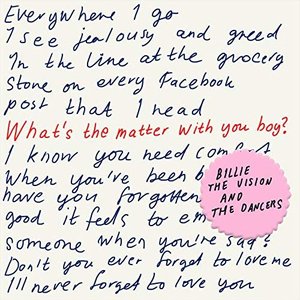 Everywhere I go
I see jealousy and greed
In the line at the grocery
store on every Facebook
post that I read
What's the matter with you boy?
I know you need
When you've been
have you forgotten
good it feels to
someone when you're sad?
Don't you ever forget to love me
I'll never forget to love you
BILLIE
THE VISION
AND
THE DANCERS